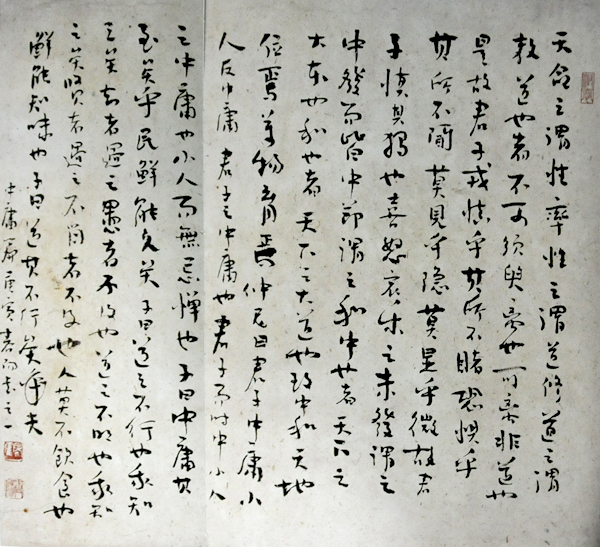 天命之謂性率性之謂道修道之謂
教道也者不可須臾離也可離非道也
是故君子戒慎乎其所不睹恐懼乎
其所不聞莫見乎隱莫顯乎微故君
子慎其獨也喜怒哀樂之未發謂之
中發而皆中節謂之和中也者天下之
大本也和也者天下之大道也致中和天地
位焉萬物育焉仲尼曰君子中庸小
人反中庸君子之中庸也君子而時中小人
之中庸也小人而無忌憚也子曰中庸其
至矣乎民鮮能久矣子曰道之不行也我知
之矣知者過之愚者不及也道之不明也我知
之矣賢者過之不肖者不及也人莫不飲食也
鮮能知味也子曰道其不行矣夫
中庸庚寅書之一